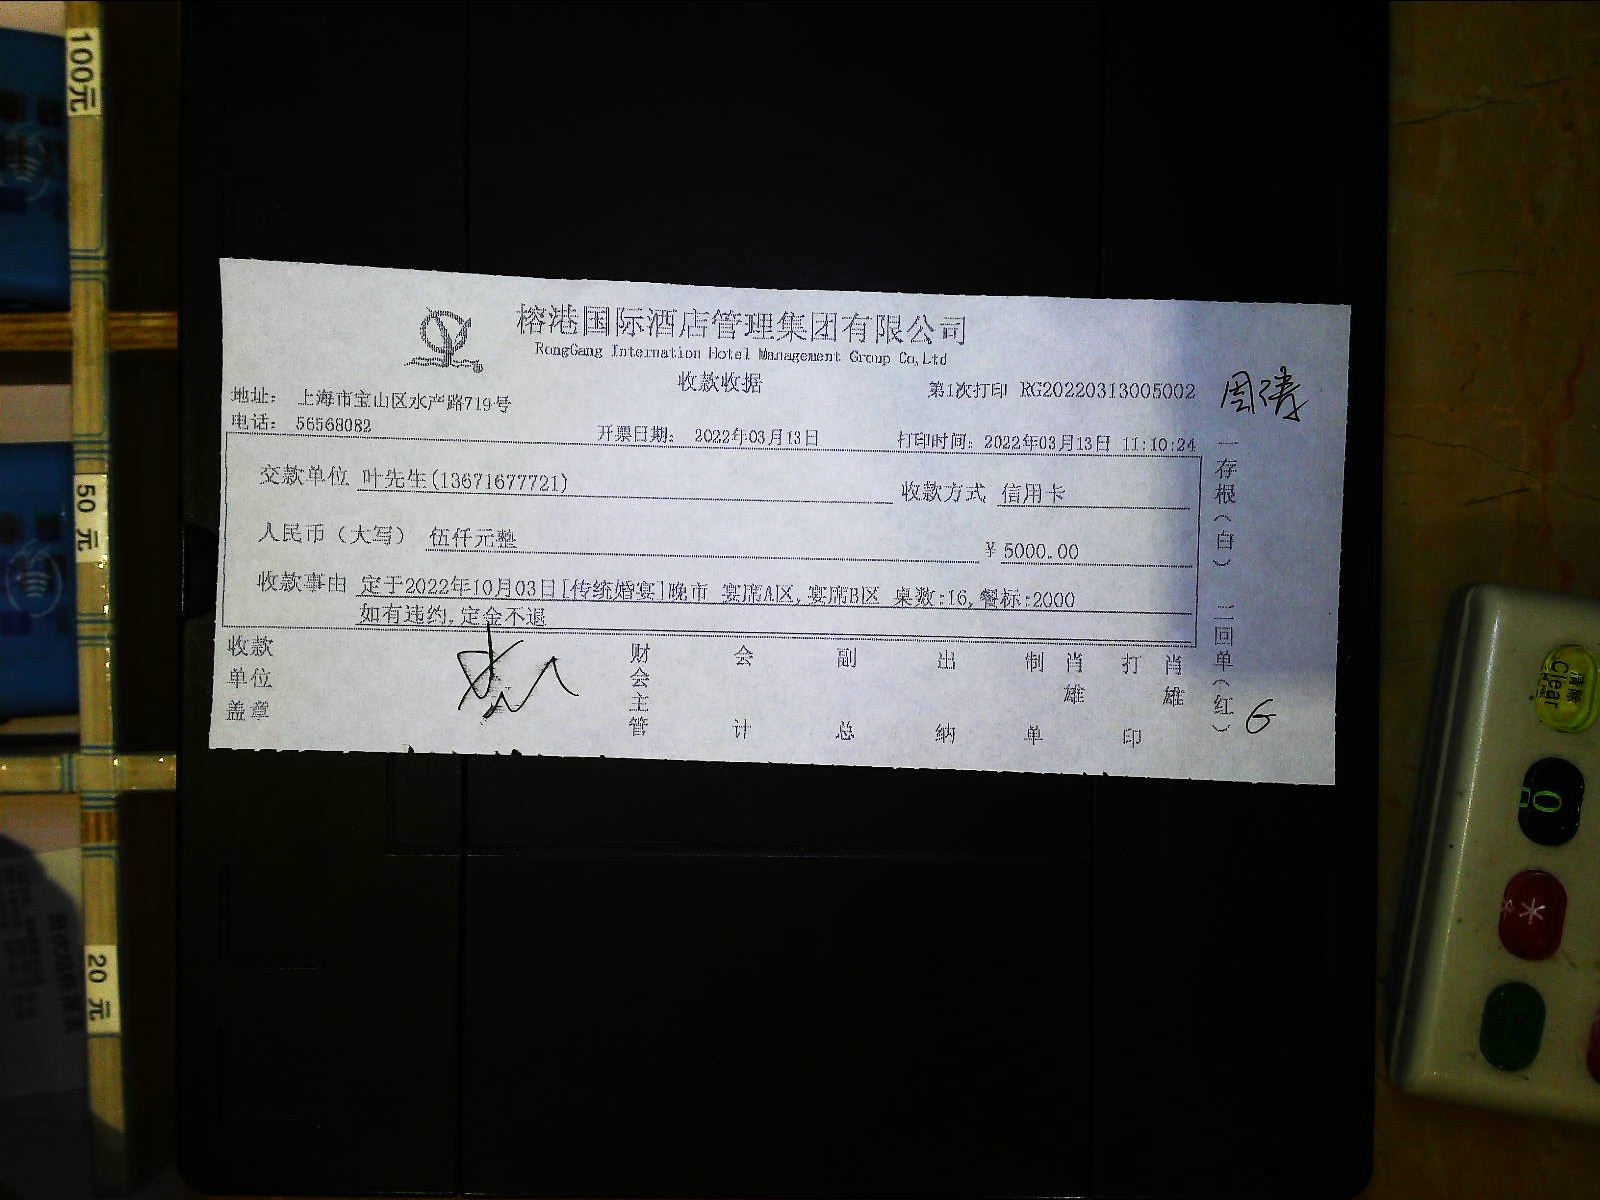 榕港国际酒店管理集团有限公司
RongGang Internation Hotel Management Group Co,Ltd
收款收据
第1次打印 RG20220313005002
周涛
地址： 上海市宝山区水产路719号
电话： 56568082
开票日期： 2022年03月13日
打印时间：2022年03月13日 11:10:24
交款单位 叶先生(13671677721)
收款方式 信用卡
人民币（大写） 伍仟元整
¥ 5000.00
收款事由 定于2022年10月03日[传统婚宴]晚市 宴席A区,宴席B区 桌数:16,餐标:2000
如有违约,定金不退
收款单位盖章
财会主管
会计
副总
出纳
制单
肖雄
打印
肖雄
一存根（白） 二回单（红）
G
100元
50 元
20 元
清除
Clear
0
*